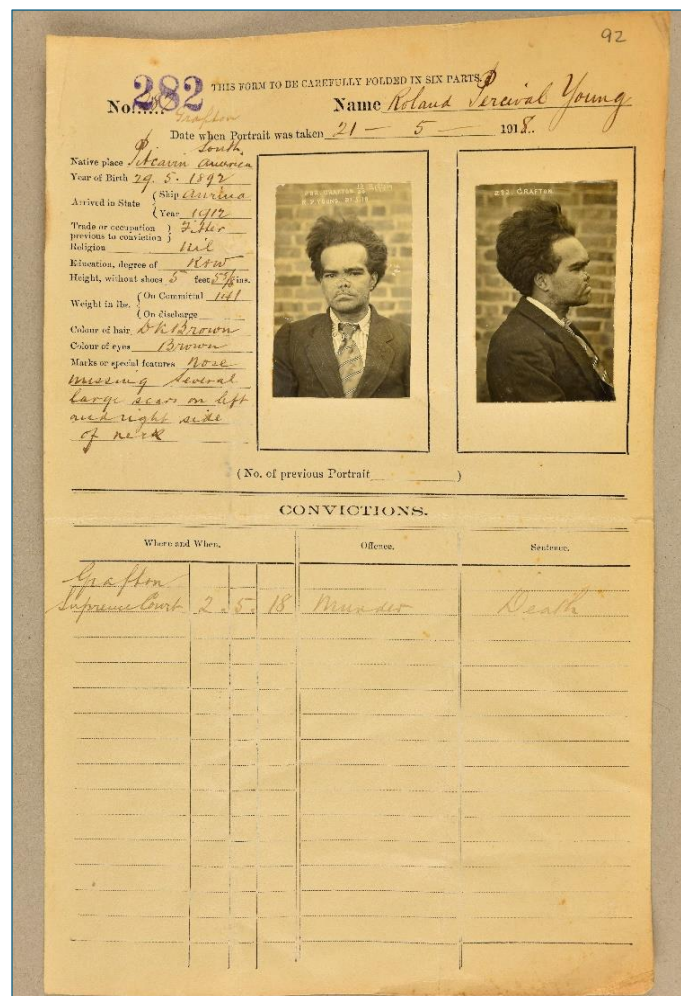 92
282 THIS FORM TO BE CAREFULLY FOLDED IN SIX PARTS.
No...... Name Roland Percival Young
Grafton
Date when Portrait was taken 21 - 5 - 1918.
South
Native place Pitcairn America
Year of Birth 29. 5. 1892
Arrived in State { Ship
{ Year 1912
Trade or occupation previous to conviction } Fitter
Religion Nil
Education, degree of R & W
Height, without shoes 5 feet 5 5/8 ins.
Weight in lbs. { On Committal 141
{ On discharge
Colour of hair Dk Brown
Colour of eyes Brown
Marks or special features Nose
missing several
large scars on left
and right side
of neck
282 GRAFTON
R.P. YOUNG. 21.5.18
282 GRAFTON
(No. of previous Portrait )
CONVICTIONS.
Where and When. Offence. Sentence.
Grafton
Supreme Court 2 5 18 Murder Death